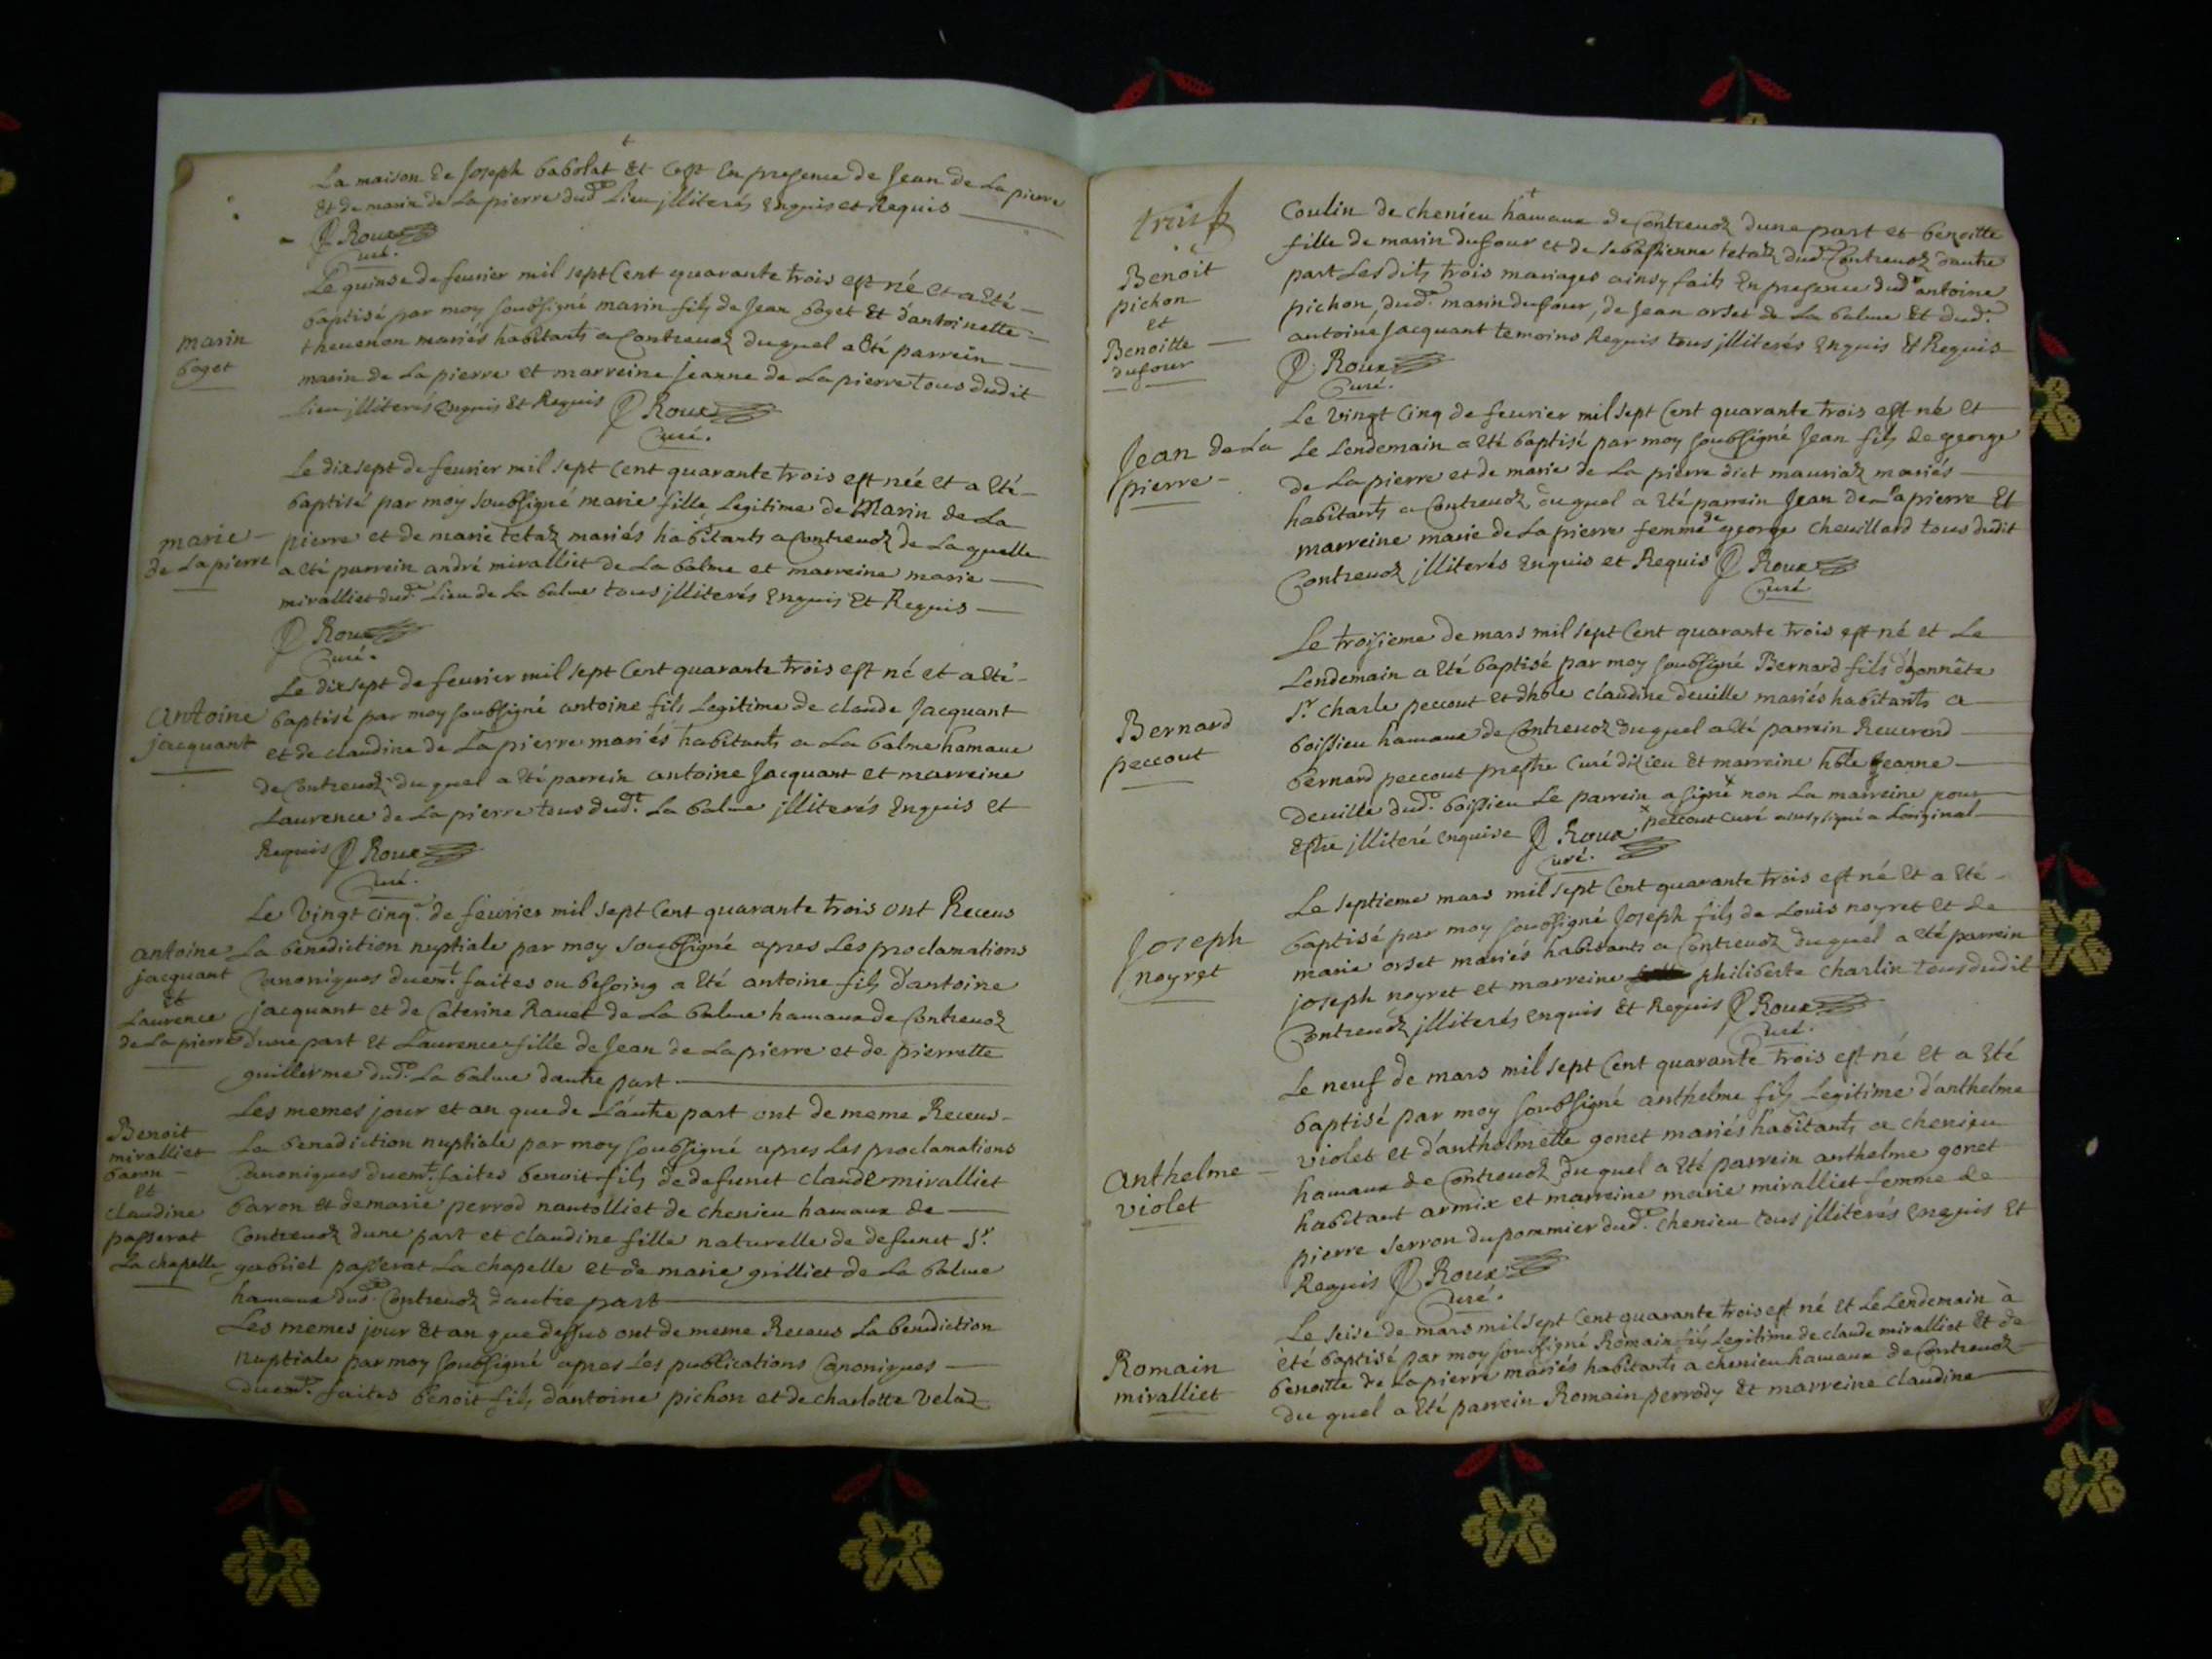 La maison de Joseph babolat Et C'est En presence de Jean de La pierre
Et de marin de La pierre dud. Lieu jlliterés Enquis et Requis
Roux
Curé.
Le quinse de feurier mil sept Cent quarante trois est né et a Eté
baptisé par moy soubsigné marin fils de Jean boget Et d'antoinette
marin
boget
theuenon mariés habitants a Contreuoz duquel a Eté parrein
marin de La pierre et marreine jeanne de La pierre tous dudit
Lieu jlliterés Enquis Et Requis Roux
Curé.
Le dixsept de feurier mil sept Cent quarante trois est née et a Eté
baptisé par moy soubsigné marie fille Legitime de Marin de La
marie
de Lapierre
pierre et de marie tetaz mariés habitants a Contreuoz de La quelle
a Eté parrein andré miralliet de La balme et marreine marie
miralliet dud. Lieu de La balme tous jlliterés Enquis Et Requis
Roux
Curé.
Le dixsept de feurier mil sept Cent quarante trois est né et a Eté
antoine
jacquant
baptisé par moy soubsigné antoine fils Legitime de claude Jacquant
et de claudine de La pierre mariés habitants a La balme hamaux
de Contreuoz duquel a Eté parrein antoine Jacquant et marreine
Laurence de La pierre tous dud. La balme jlliterés Enquis et
Requis Roux
Curé.
Le Vingt cinq de feurier mil sept Cent quarante trois ont Receus
antoine
jacquant
Et
Laurence
de La pierre
La benediction nuptiale par moy Soubsigné apres Les proclamations
Canoniques duemt. faites ou besoing a Eté antoine fils d'antoine
jacquant et de Caterine Rauet de La balme hamaux de Contreuoz
d'une part Et Laurence fille de Jean de La pierre et de pierrette
guillerme dud. La balme d'autre part
Les memes jour et an que de L'autre part ont de meme Receus
Benoit
miralliet
baron
Et
claudine
passerat
La chapelle
La benediction nuptiale par moy soubsigné apres Les proclamations
Canoniques duemt. faites benoit fils de defunct claude miralliet
baron Et de marie perrod nantolliet de chenieu hamaux de
Contreuoz dune part et claudine fille naturelle de defunct Sr.
gabriel passerat La chapelle et de marie grilliet de La balme
hamaux dud. Contreuoz dautre part
Les memes jour Et an que dessus ont de meme Receus La benediction
nuptiale par moy soubsigné apres Les publications Canoniques
duemt. faites benoit fils d'antoine pichon et de charlotte velaz
Coulin de chenieu hamaux de Contreuoz dune part et benoitte
Benoit
pichon
et
Benoitte
dufour
fille de marin dufour et de sebastienne tetaz dud. Contreuoz dautre
part Lesdits trois mariages ainsy faits En presence dud. antoine
pichon, dud. marin dufour, de Jean orset de La balme Et dud.
antoine Jacquant temoins Requis tous jlliterés Enquis Et Requis
Roux
Curé.
Le Vingt Cinq de feurier mil sept Cent quarante trois est né et
Jean de La
pierre
Le Lendemain a Eté baptisé par moy soubsigné Jean fils de george
de La pierre et de marie de La pierre dict mauriaz mariés
habitants a Contreuoz duquel a Eté parrein Jean de La pierre Et
marreine marie de La pierre femme de george cheuillard tous dudit
Contreuoz jlliterés Enquis et Requis Roux
Curé
Le troisieme de mars mil sept Cent quarante trois est né et Le
Lendemain a Eté baptisé par moy soubsigné Bernard fils d'honnête
Bernard
peccout
Sr. charle peccout et d'hble claudine deuille mariés habitants a
boissieu hamaux de Contreuoz duquel a Eté parrein Reuerend
bernard peccout prestre Curé dizieu Et marreine hble Jeanne
deuille dud. boissieu Le parrein a signé x non La marreine pour
Estre jlliteré enquise Roux x peccout curé ainsy signé a Loriginal
Curé.
Le septieme mars mil sept Cent quarante trois est né et a Eté
Joseph
noyret
baptisé par moy soubsigné Joseph fils de Louis noyret et de
marie orset mariés habitants a Contreuoz duquel a Eté parrein
joseph noyret et marreine philiberte charlin tous dudit
Contreuoz jlliterés Enquis Et Requis Roux
Curé.
Le neuf de mars mil sept Cent quarante trois est né Et a Eté
baptisé par moy soubsigné anthelme fils Legitime d'anthelme
anthelme
violet
violet et d'anthelmette gonet mariés habitants a chenieu
hamaux de Contreuoz duquel a Eté parrein anthelme gonet
habitant armix et marreine marie miralliet femme de
pierre serron dupommier dud. chenieu tous jlliterés Enquis Et
Requis Roux
Curé.
Le seise de mars mil sept Cent quarante trois est né Et Le Lendemain à
Romain
miralliet
été baptisé par moy soussigné Romain fils Legitime de claude miralliet Et de
benoitte de La pierre mariés habitants a chenieu hamaux de Contreuoz
du quel a Eté parrein Romain perrody Et marreine claudine